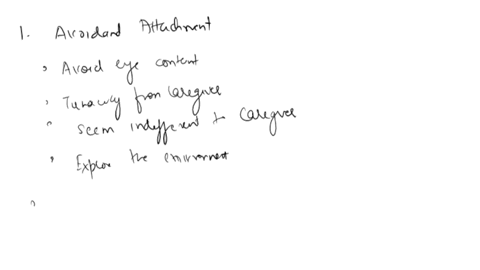 1. Avoidand Attachment
, Avoid eye content
, Turaway from Caregiver
" Seem indifferent to Caregiver
, Explore the environment